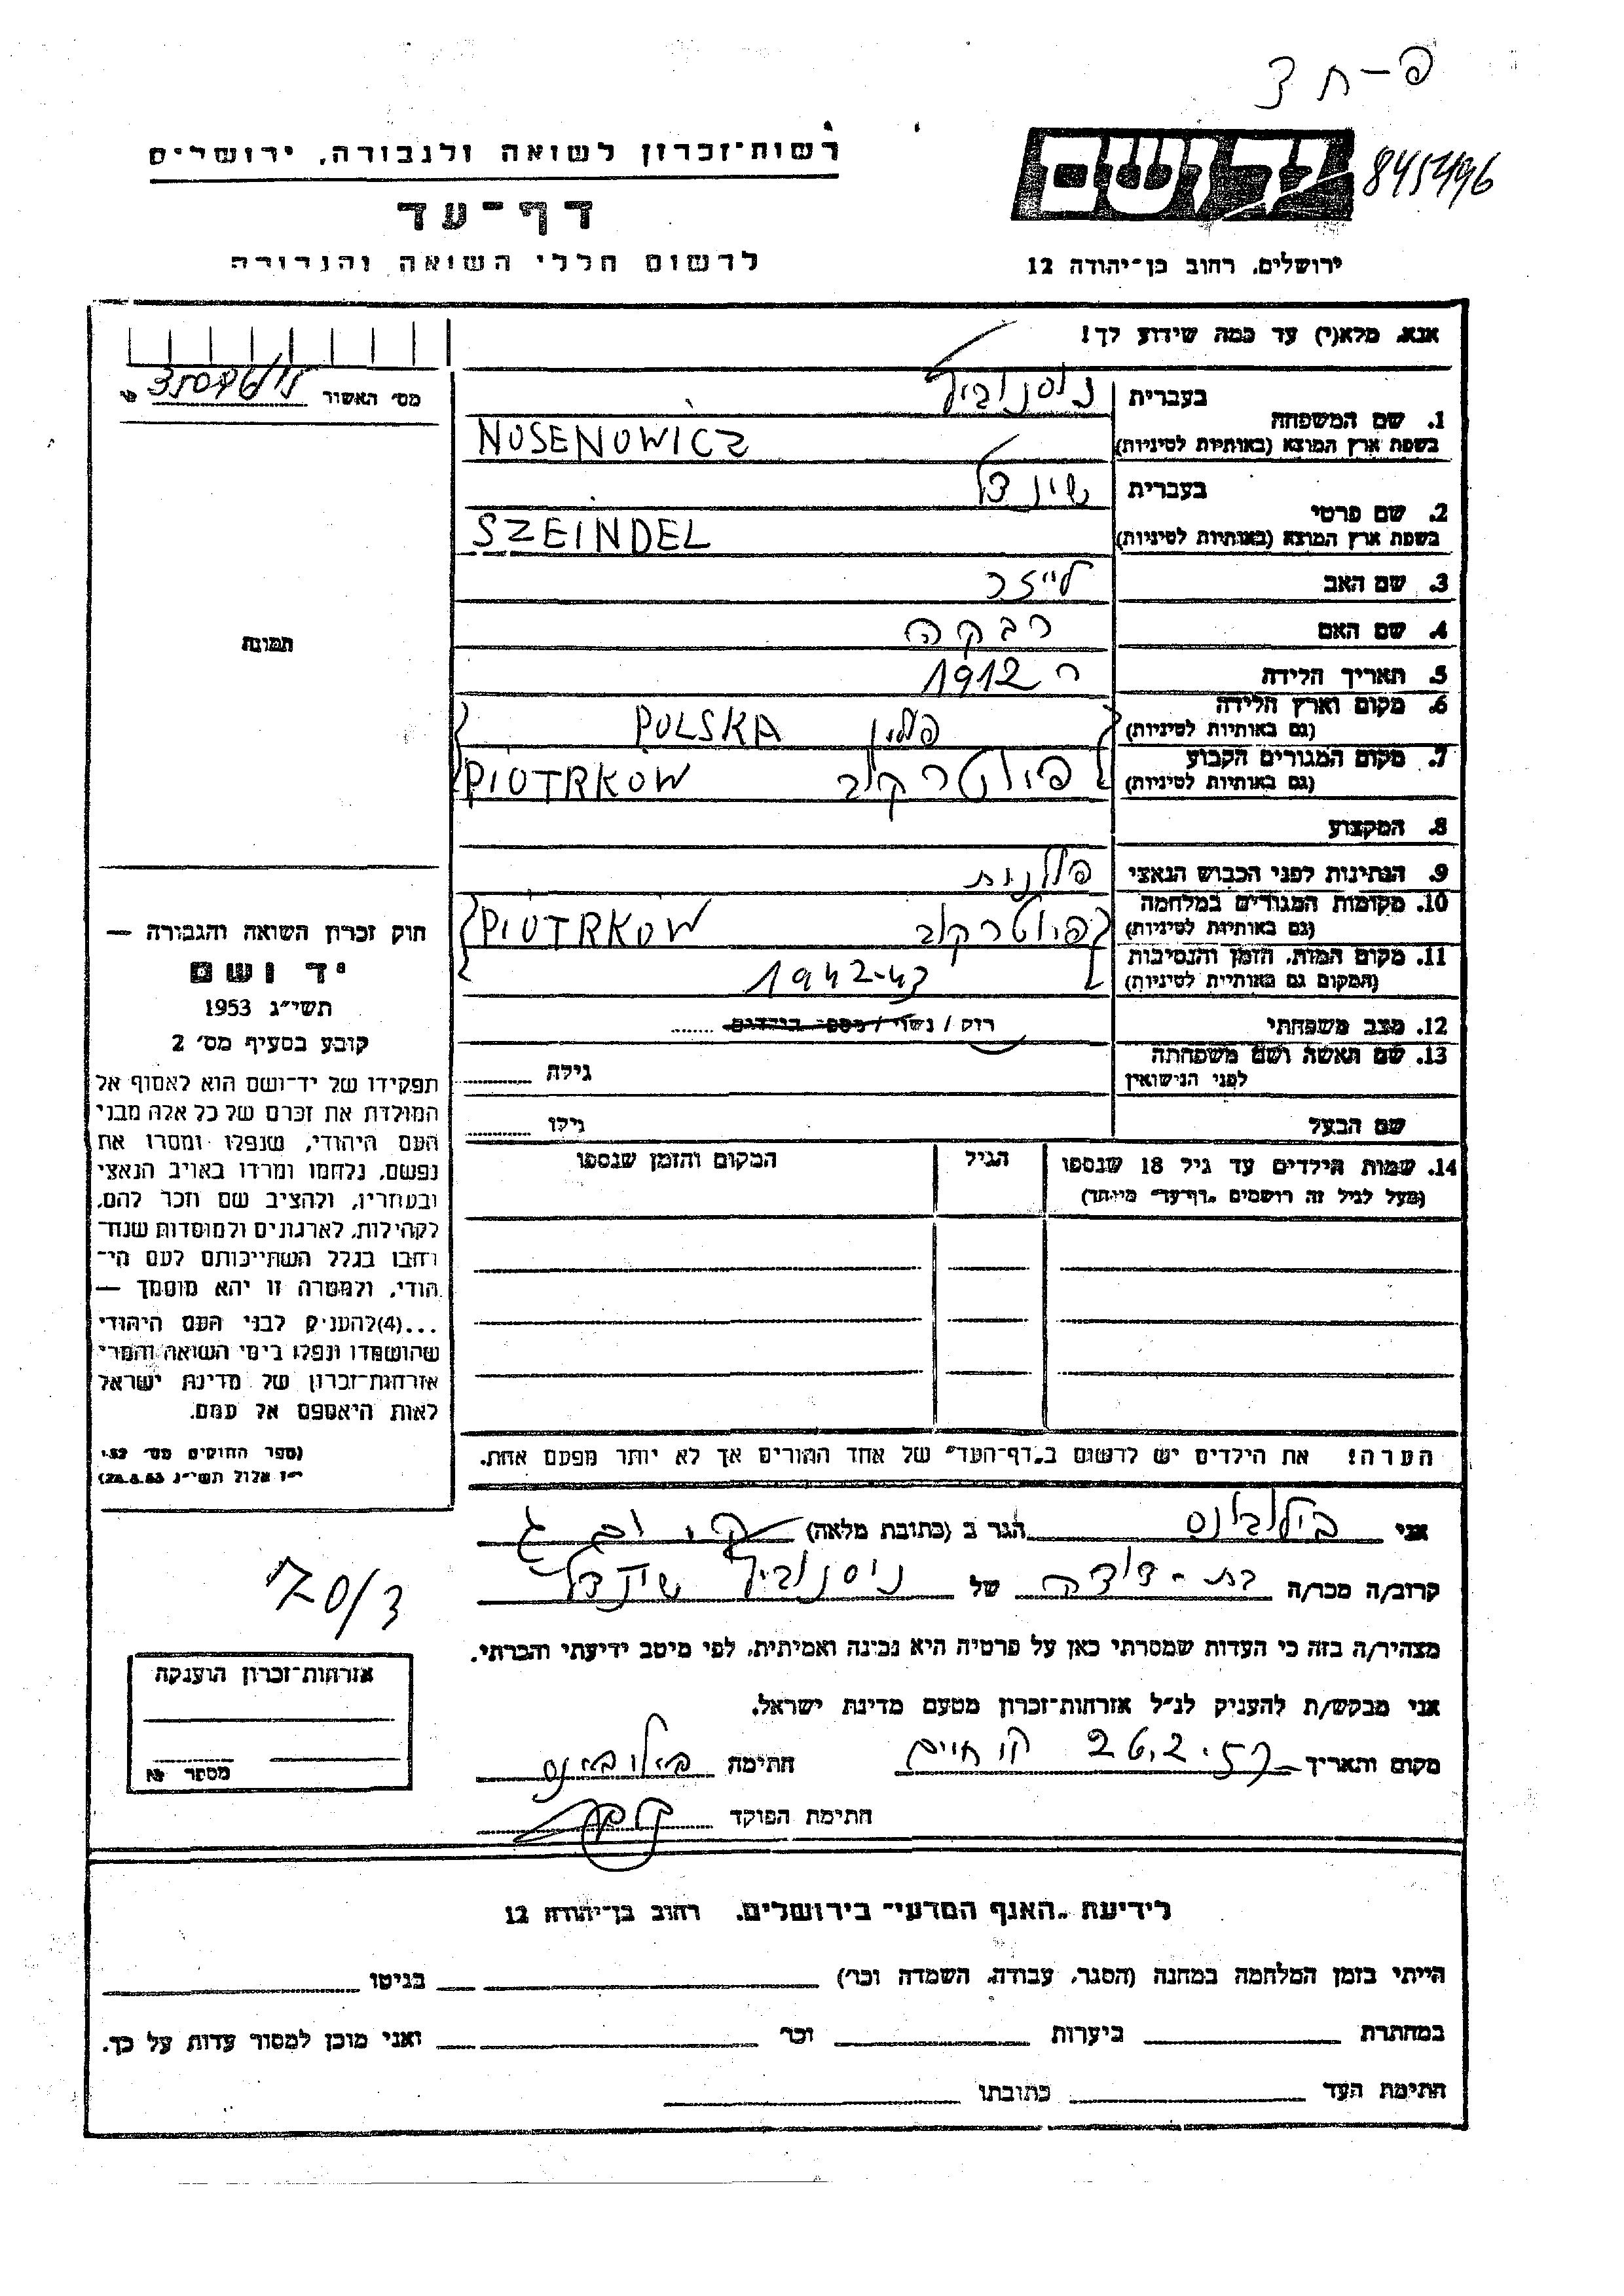 פ-ח 3
רשות-זכרון לשואה ולגבורה, ירושלים
דף-עד
לרשום חללי השואה והגבורה
ירושלים, רחוב בן-יהודה 12
אנא, מלא(י) עד כמה שידוע לך!
מס' האשור
1. שם המשפחה
בעברית נוסנוביץ
בשפת ארץ המוצא (באותיות לטיניות) NUSENOWICZ
2. שם פרטי
בעברית שינדל
בשפת ארץ המוצא (באותיות לטיניות) SZEINDEL
3. שם האב לייזר
4. שם האם רבקה
5. תאריך הלידה 1912
6. מקום וארץ הלידה
(גם באותיות לטיניות) פולין POLSKA
7. מקום המגורים הקבוע
(גם באותיות לטיניות) פיוטרקוב PIOTRKOW
8. המקצוע
9. הנתינות לפני הכבוש הנאצי פולנית
10. מקומות המגורים במלחמה
(גם באותיות לטיניות) פיוטרקוב PIOTRKOW
11. מקום המות, הזמן והנסיבות
(המקום גם באותיות לטיניות) 1942-43
12. מצב משפחתי רוק / נשוי / מספר הילדים
13. שם האשה ושם משפחתה
לפני הנישואין גילה
שם הבעל גילו
14. שמות הילדים עד גיל 18 שנספו הגיל המקום והזמן שנספו
(מעל לגיל זה רושמים "דף-עד" מיוחד)
הערה! את הילדים יש לרשום ב"דף-העד" של אחד ההורים אך לא יותר מפעם אחת.
תמונה
חוק זכרון השואה והגבורה —
יד ושם
תשי"ג 1953
קובע בסעיף מס' 2
תפקידו של יד-ושם הוא לאסוף אל
המולדת את זכרם של כל אלה מבני
העם היהודי, שנפלו ומסרו את
נפשם, נלחמו ומרדו באויב הנאצי
ובעוזריו, ולהציב שם וזכר להם,
לקהילות, לארגונים ולמוסדות שנח-
רבו בגלל השתייכותם לעם הי-
הודי, ולמטרה זו יהא מוסמך —
...(4)להעניק לבני העם היהודי
שהושמדו ונפלו בימי השואה והמרי
אזרחות-זכרון של מדינת ישראל
לאות היאספם אל עמם.
(ספר החוקים מס' 132
י"ז אלול תשי"ג 28.8.53)
אני הגר ב (כתובת מלאה)
קרוב/ה מכר/ה בת-דודה של נוסנוביץ שינדל
מצהיר/ה בזה כי העדות שמסרתי כאן על פרטיה היא נכונה ואמיתית, לפי מיטב ידיעתי והכרתי.
אני מבקש/ת להעניק לנ"ל אזרחות-זכרון מטעם מדינת ישראל.
מקום ותאריך קר חיים 26.2.57 חתימה
חתימת הפוקד
70/3
אזרחות-זכרון הוענקה
מספר №
לידיעת "האגף המדעי" בירושלים, רחוב בן-יהודה 12
הייתי בזמן המלחמה במחנה (הסגר, עבודה, השמדה וכו') בגיטו
במחתרת ביערות וכו' ואני מוכן למסור עדות על כך.
חתימת העד כתובתו